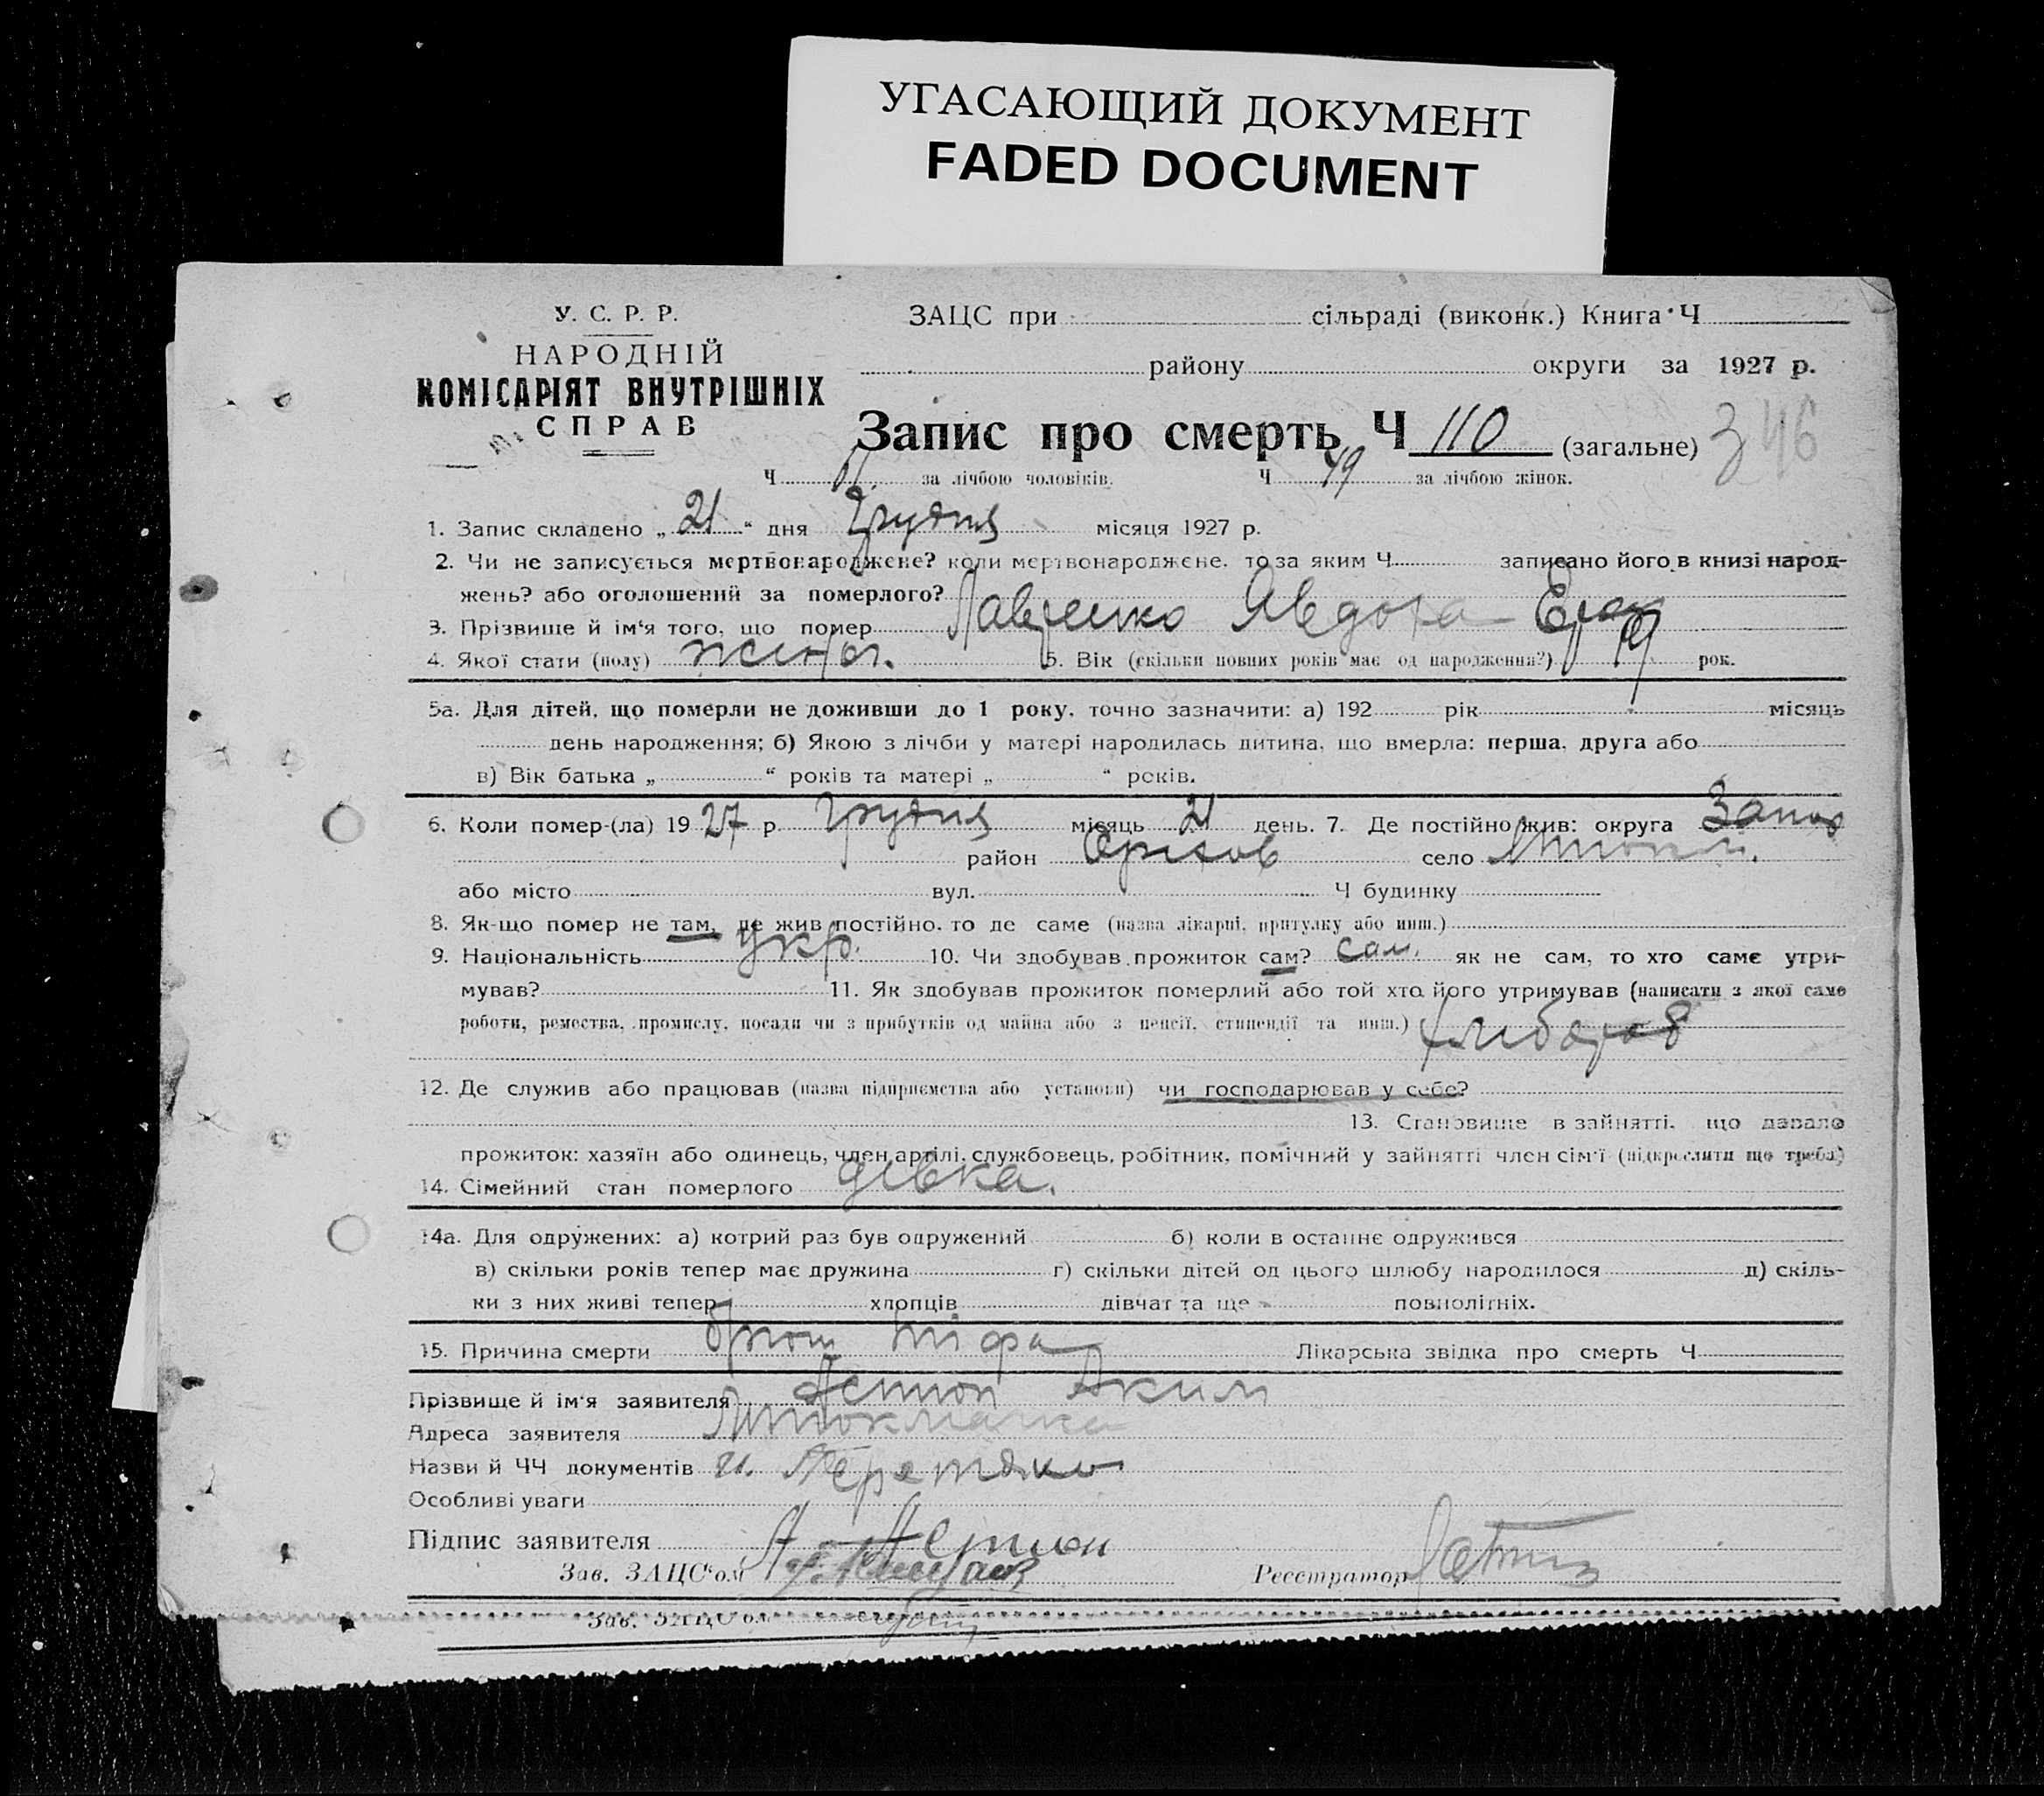 УГАСАЮЩИЙ ДОКУМЕНТ
FADED DOCUMENT
У. С. Р. Р.
НАРОДНІЙ
КОМІСАРІЯТ ВНУТРІШНІХ
СПРАВ
ЗАЦС при сільраді (виконк.) Книга Ч
району округи за 1927 р.
Запис про смерть Ч 110 (загальне) 346
Ч 61 за лічбою чоловіків. Ч 49 за лічбою жінок.
1. Запис складено „ 21 “ дня Грудня місяця 1927 р.
2. Чи не записується мертвонароджене? коли мертвонароджене, то за яким Ч записано його в книзі народ-
жень? або оголошений за померлого?
3. Прізвище й ім‘я того, що помер Лавренко Явдоха
4. Якої стати (полу) жіноч. 5. Вік (скільки повних років має од народження?) 19 рок.
5а. Для дітей, що померли не доживши до 1 року, точно зазначити: а) 192 рік місяць
день народження; б) Якою з лічби у матері народилась дитина, що вмерла: перша, друга або
в) Вік батька „ “ років та матері „ “ років.
6. Коли помер-(ла) 19 27 р. Грудня місяць 21 день. 7. Де постійно жив: округа Запор
район Оріхов село
або місто вул. Ч будинку
8. Як-що помер не там, де жив постійно, то де саме (назва лікарні, притулку або инш.)
9. Національність укр. 10. Чи здобував прожиток сам? сам. як не сам, то хто саме утри-
мував? 11. Як здобував прожиток померлий або той хто його утримував (написати з якої саме
роботи, ремества, промислу, посади чи з прибутків од майна або з пенсії, стипендії та инш.) хлібороб
12. Де служив або працював (назва підприємства або установи) чи господарював у себе?
13. Становище в зайнятті, що давало
прожиток: хазяїн або одинець, член артілі, службовець, робітник, помічний у зайнятті член сім‘ї (підкреслити що треба)
14. Сімейний стан померлого дівка.
14а. Для одружених: а) котрий раз був одружений б) коли в останнє одружився
в) скільки років тепер має дружина г) скільки дітей од цього шлюбу народилося д) скіль-
ки з них живі тепер хлопців дівчат та ще повнолітніх.
15. Причина смерти тіфа Лікарська звідка про смерть Ч
Прізвище й ім‘я заявителя Аким
Адреса заявителя
Назви й ЧЧ документів
Особливі уваги
Підпис заявителя
Зав. ЗАЦС‘ом Реєстратор
Зав. ЗАЦС‘ом